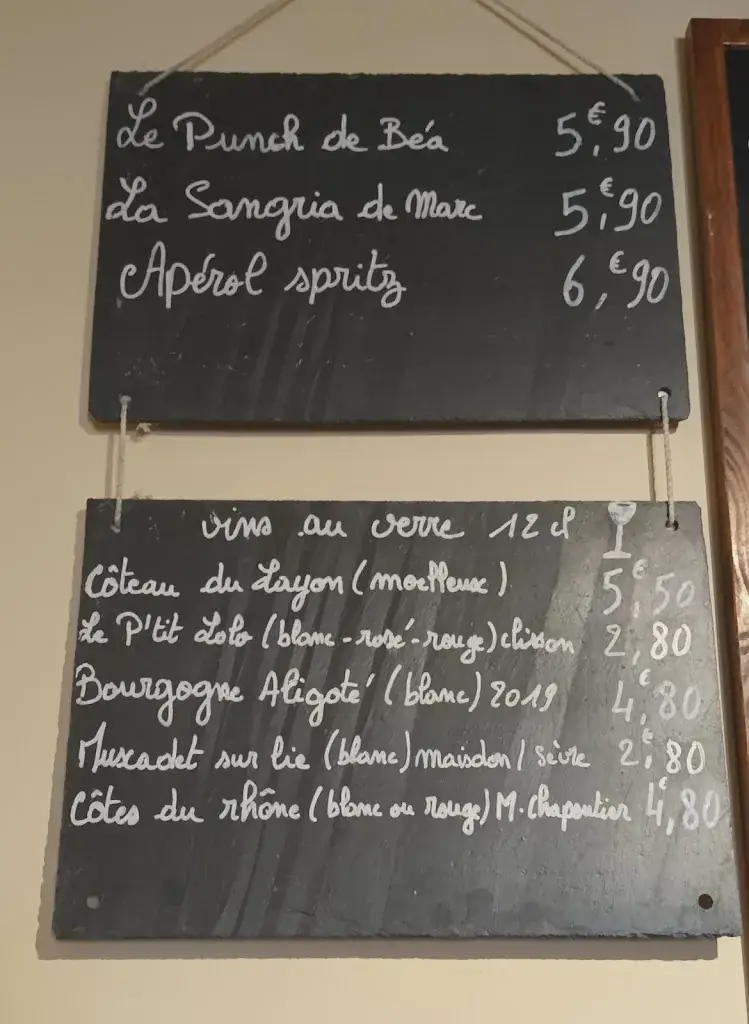 Le Punch de Béa 5,€90
La Sangria de Marc 5,€90
Apérol spritz 6,€90
vins au verre 12 cl
Côteau du Layon (moelleux) 5,€50
Le P'tit Lolo (blanc-rosé-rouge) clisson 2,80
Bourgogne Aligoté (blanc) 2019 4,€80
Muscadet sur lie (blanc) maisdon / sèvre 2,€80
Côtes du rhône (blanc ou rouge) M. Chapoutier 4,€80